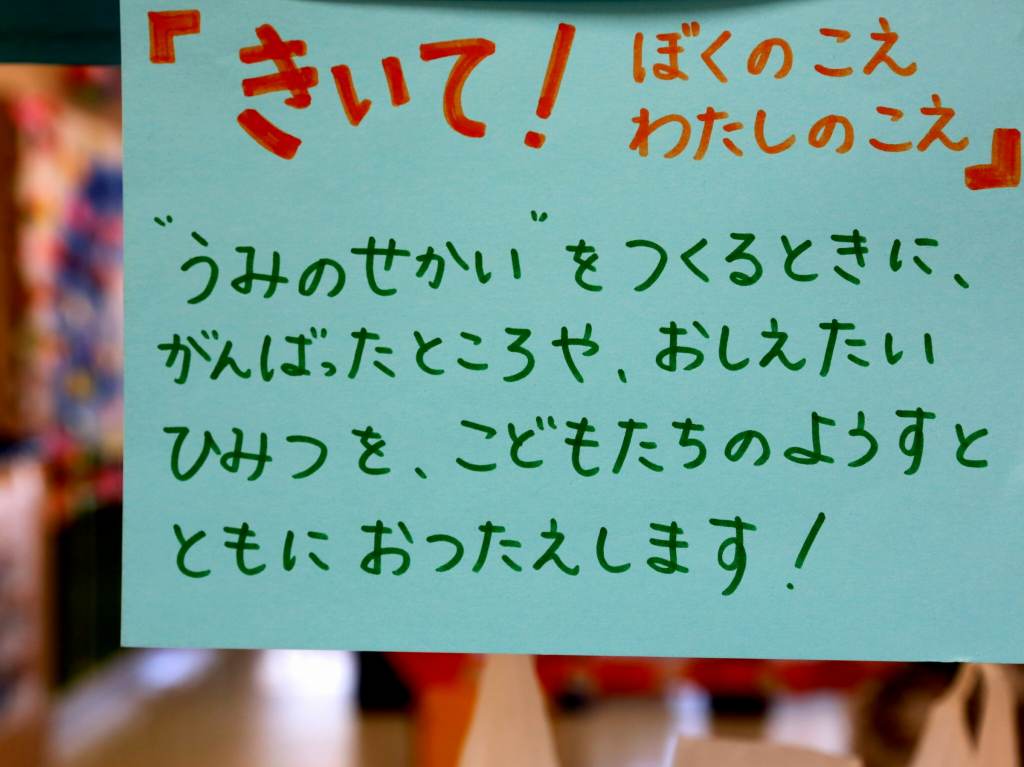 『きいて！ ぼくのこえ
わたしのこえ』
"うみのせかい"をつくるときに、
がんばったところや、おしえたい
ひみつを、こどもたちのようすと
ともにおつたえします！